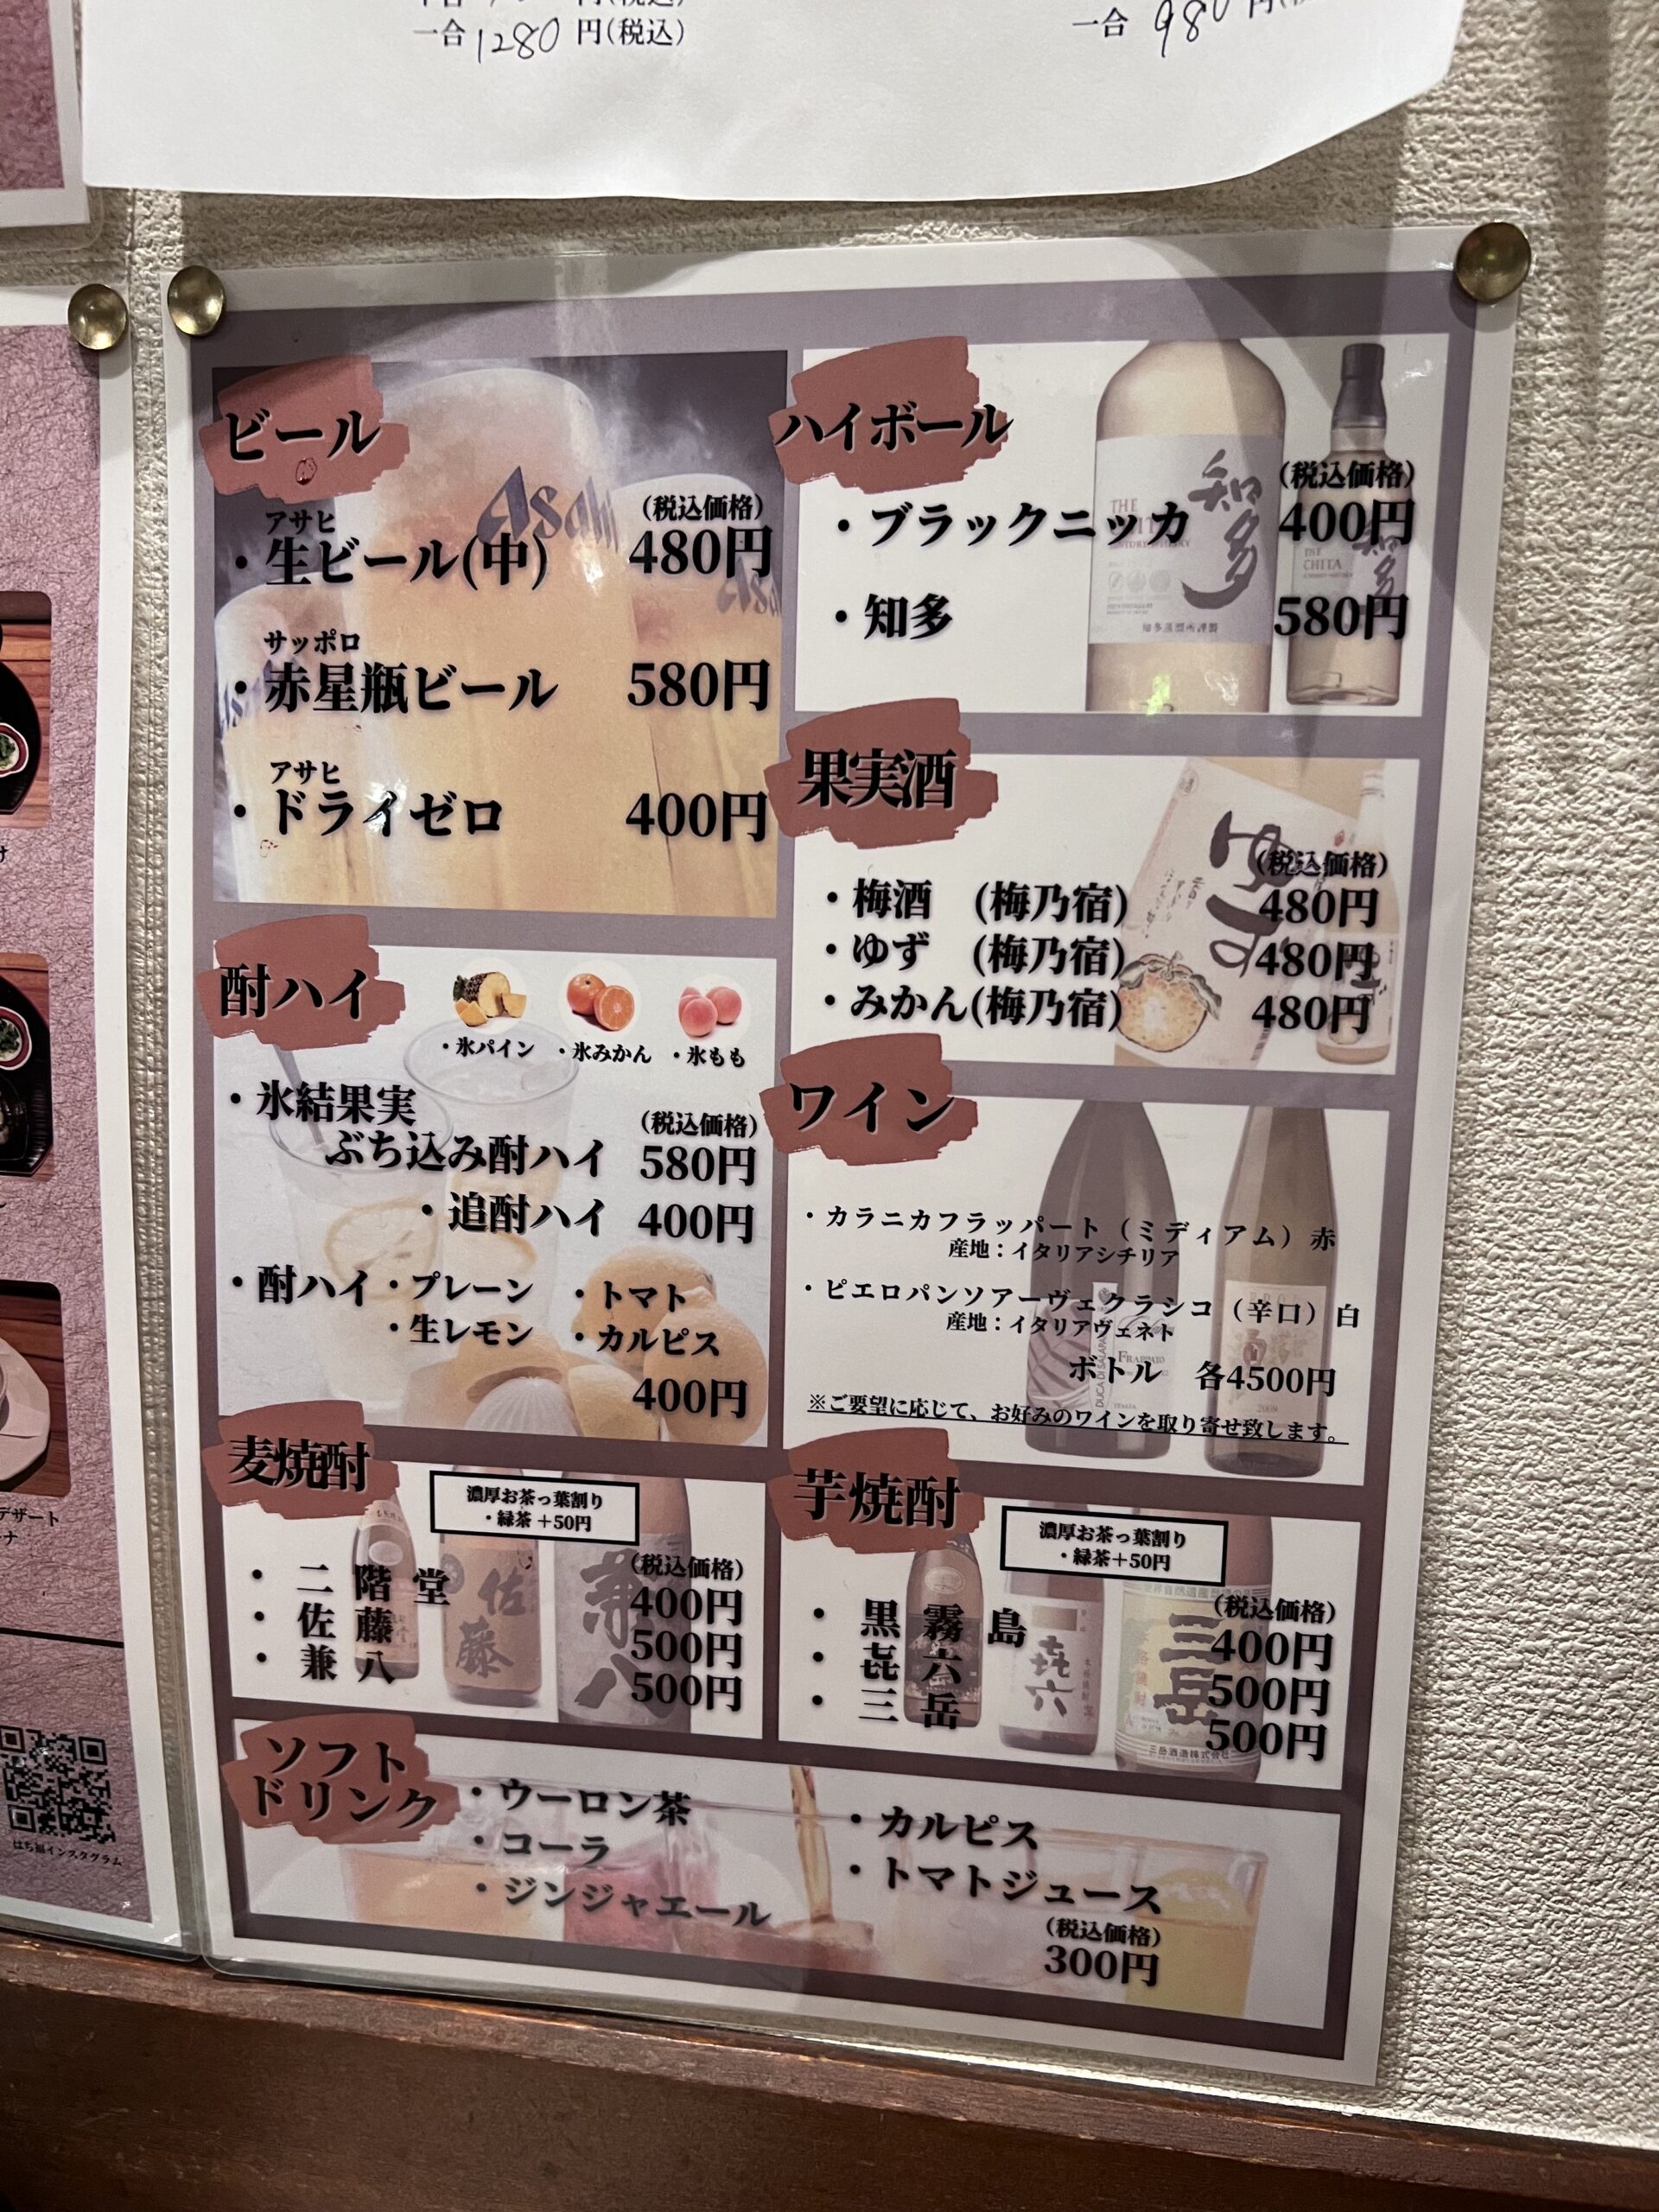 一合 1280 円(税込)
一合 980
ビール
(税込価格)
アサヒ
・生ビール(中) 480円
サッポロ
・赤星瓶ビール 580円
アサヒ
・ドライゼロ 400円
Asahi
酎ハイ
・氷パイン ・氷みかん ・氷もも
・氷結果実
(税込価格)
ぶち込み酎ハイ 580円
・追酎ハイ 400円
・酎ハイ ・プレーン ・トマト
・生レモン ・カルピス
400円
麦焼酎
濃厚お茶っ葉割り
・緑茶 +50円
(税込価格)
・二階堂 400円
・佐藤 500円
・兼八 500円
佐藤
兼八
ハイボール
(税込価格)
・ブラックニッカ 400円
・知多 580円
THE
知多
THE
CHITA
知多
果実酒
(税込価格)
・梅酒 (梅乃宿) 480円
・ゆず (梅乃宿) 480円
・みかん(梅乃宿) 480円
ゆず
ワイン
・カラニカフラッパート（ミディアム）赤
産地：イタリアシチリア
・ピエロパンソアーヴェクラシコ（辛口）白
産地：イタリアヴェネト
ボトル 各4500円
※ご要望に応じて、お好みのワインを取り寄せ致します。
芋焼酎
濃厚お茶っ葉割り
・緑茶+50円
(税込価格)
・黒霧島 400円
・㐂六 500円
・三岳 500円
㐂六
三岳
三岳酒造株式会社
ソフト
ドリンク
・ウーロン茶
・コーラ
・ジンジャエール
・カルピス
・トマトジュース
(税込価格)
300円
デザート
はち福インスタグラム